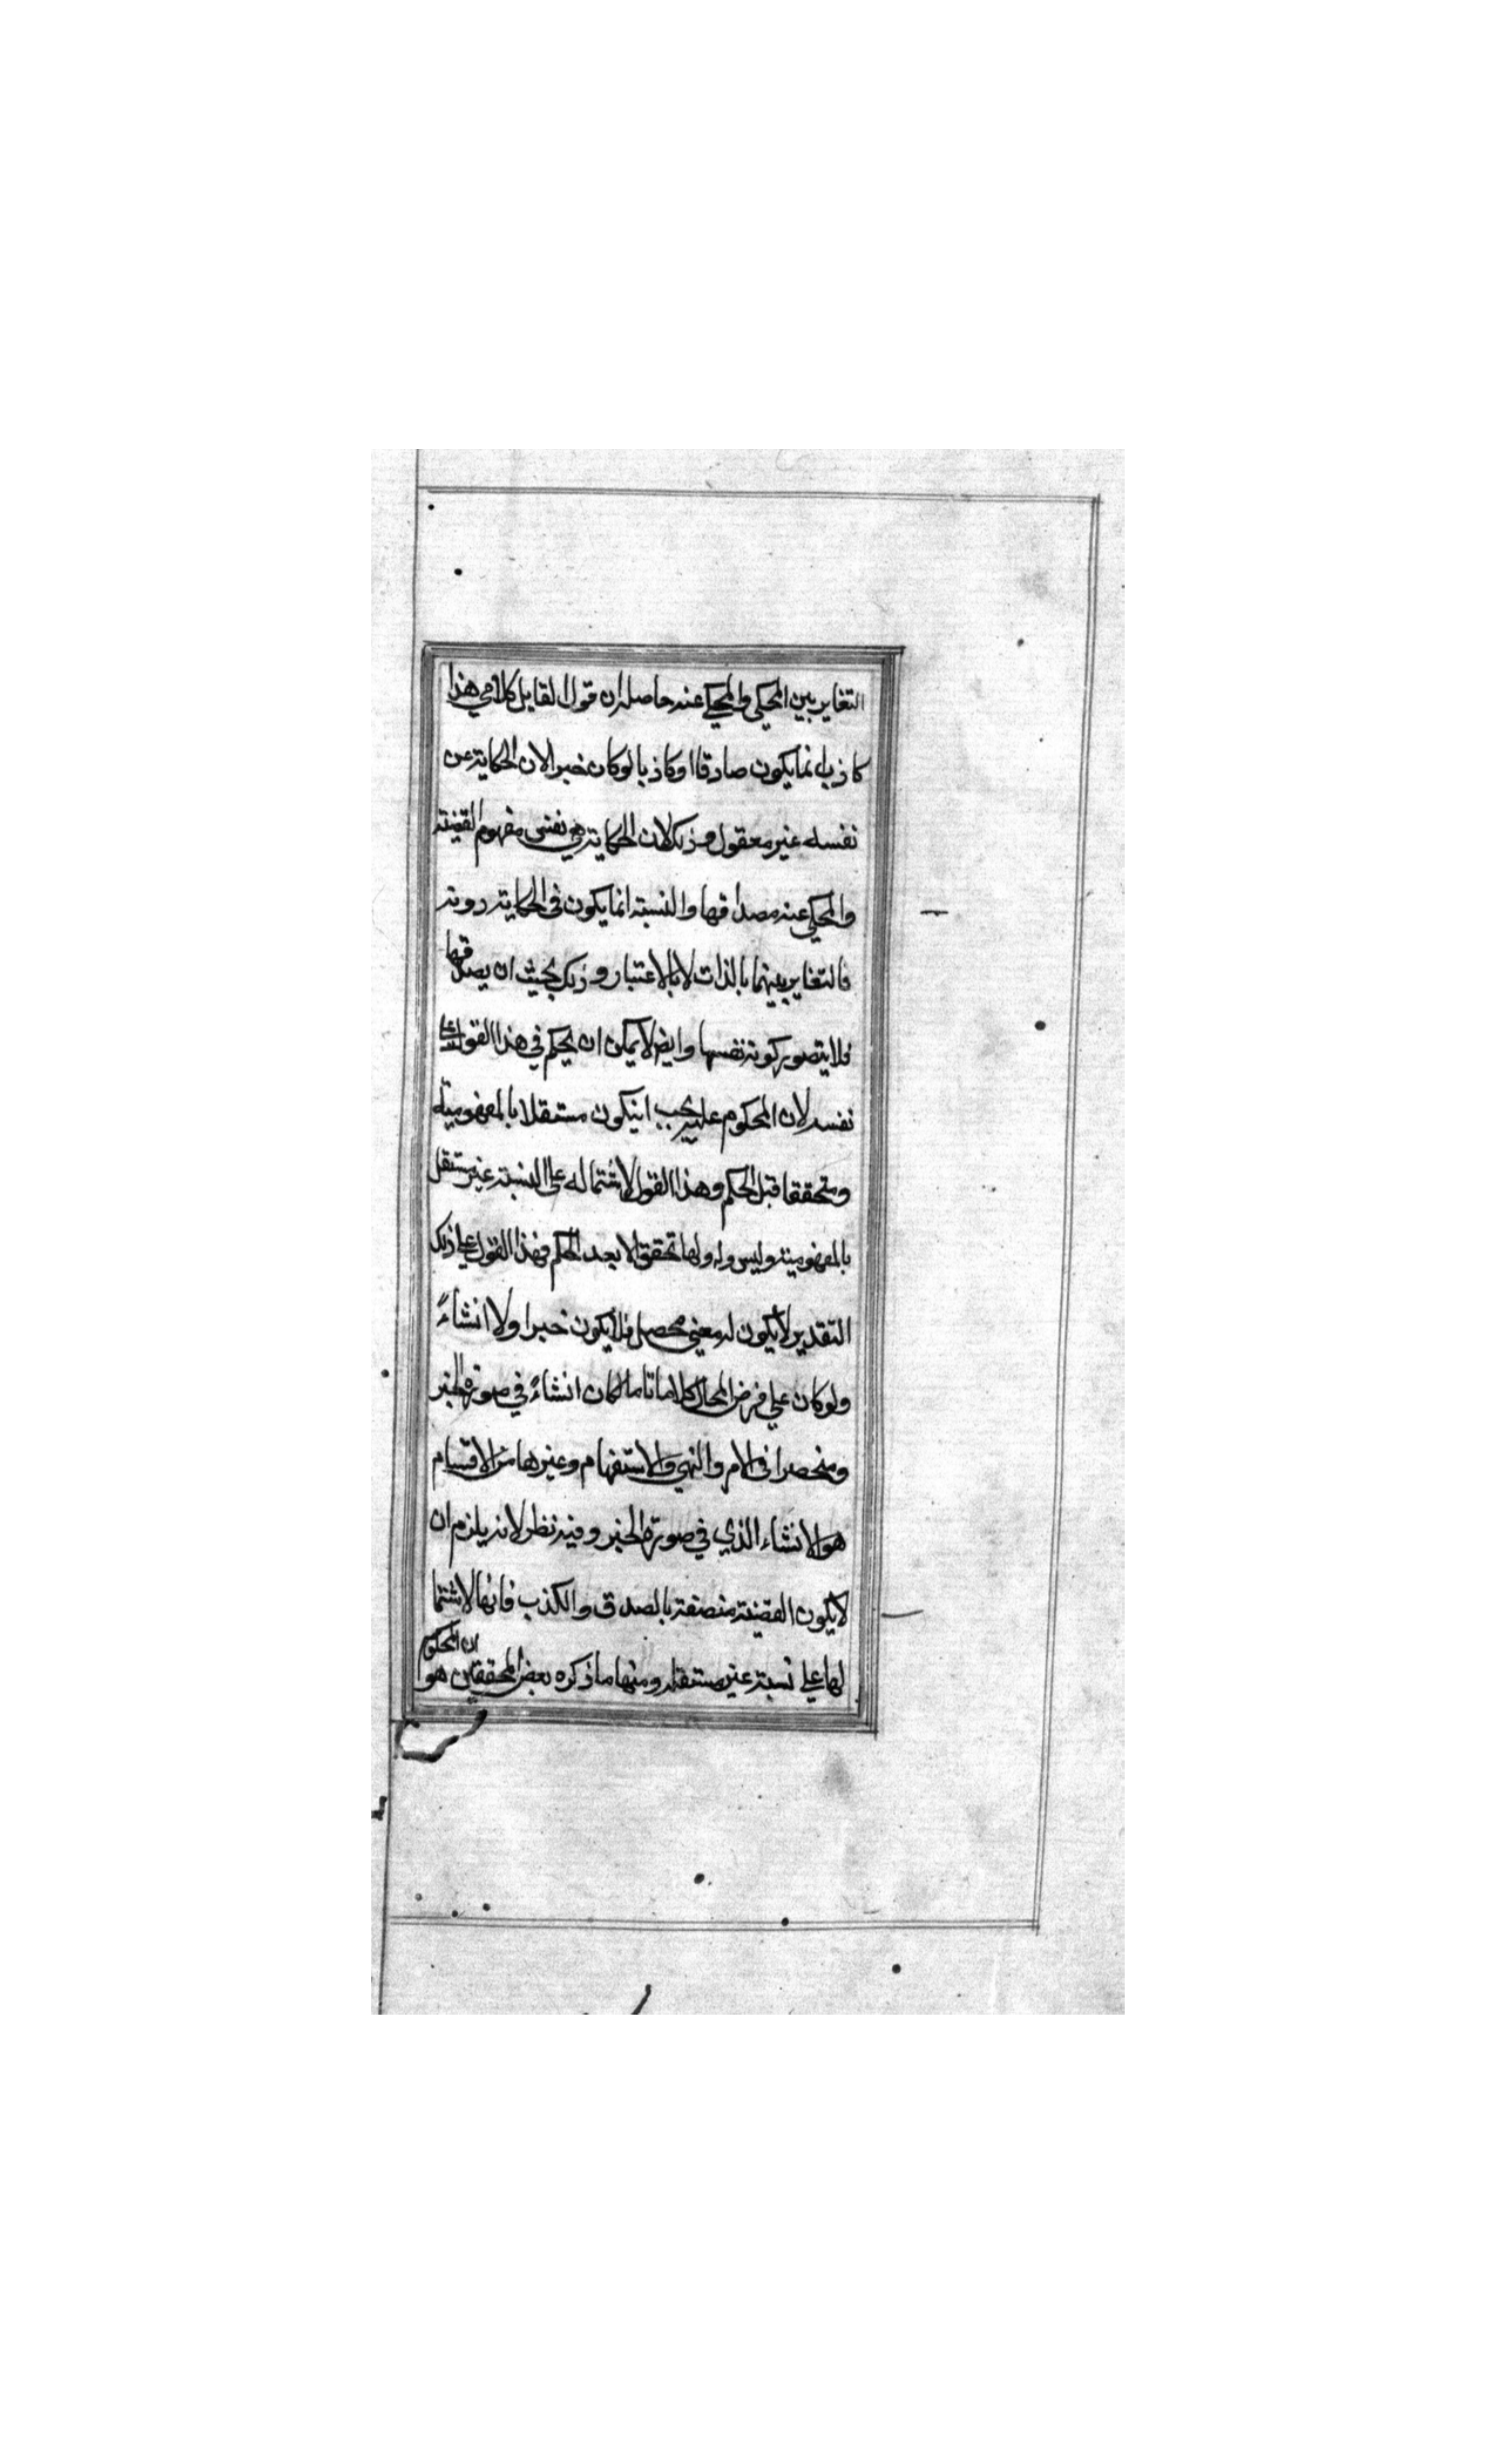 التغاير بين المحكي والمحكي عنه حاصله ان قول القايل كلامي هذا
كاذب انما يكون صادقا او كاذبا لو كان خبرا لان الحكاية عن
نفسه غير معقول وذلك لان الحكاية هي نفس مفهوم القضية
والمحكي عنه مصداقها والنسبة انما يكون في الحكاية دونه
فالتغاير بينهما بالذات لا بالاعتبار وذلك بحيث ان يصدقها
فلا يتصور كونه نفسها وايضا لا يمكن ان يحكم في هذا القول على
نفسه لان المحكوم عليه يجب ان يكون مستقلا بالمفهومية
ومتحققا قبل الحكم وهذا القول لاشتماله على النسبة غير مستقل
بالمفهومية وليس ولها تحقق الا بعد الحكم فهذا القول على ذلك
التقدير لا يكون له معنى محصل فلا يكون خبرا ولا انشاءً
ولو كان على فرض المحال كلاما تاما لكان انشاءً في صورة الخبر
ومنحصرا في الامر والنهي والاستفهام وغيرها من الاقسام
هو الانشاء الذي في صورة الخبر وفيه نظر لانه يلزم ان
لا يكون القضية متصفة بالصدق والكذب فانها لاشتما
لها على نسبة غير مستقلة ومنها ما ذكره بعض المحققين هو ان المحكوم